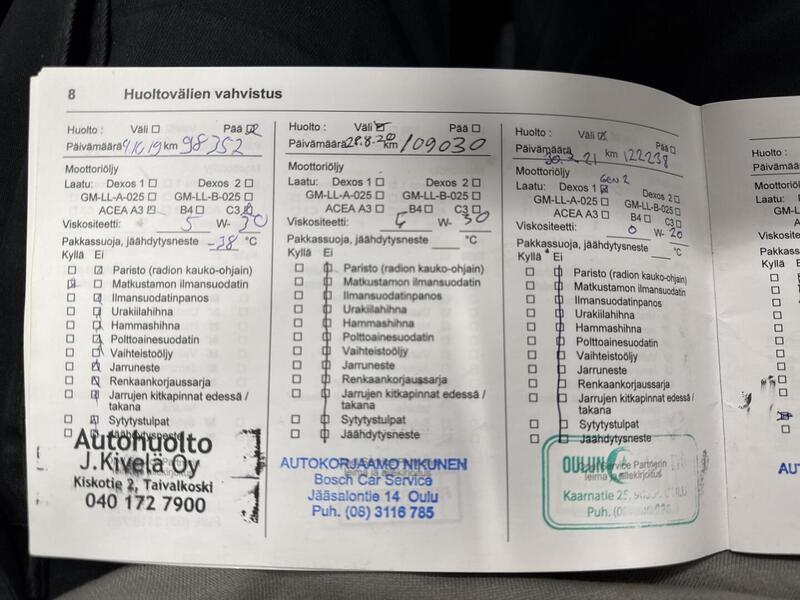 8 Huoltovälien vahvistus
Huolto : Väli Pää
Päivämäärä 9.10.19 km 98352
Moottoriöljy
Laatu: Dexos 1 Dexos 2
GM-LL-A-025 GM-LL-B-025
ACEA A3 B4 C3
Viskositeetti: 5 W- 30
Pakkassuoja, jäähdytysneste -38 °C
Kyllä Ei
Paristo (radion kauko-ohjain)
Matkustamon ilmansuodatin
Ilmansuodatinpanos
Urakiilahihna
Hammashihna
Polttoainesuodatin
Vaihteistoöljy
Jarruneste
Renkaankorjaussarja
Jarrujen kitkapinnat edessä /
takana
Sytytystulpat
Jäähdytysneste
Autohuolto
J.Kivelä Oy
Kiskotie 2, Taivalkoski
040 172 7900
Huolto : Väli Pää
Päivämäärä 28.8.20 km 109030
Moottoriöljy
Laatu: Dexos 1 Dexos 2
GM-LL-A-025 GM-LL-B-025
ACEA A3 B4 C3
Viskositeetti: 5 W- 30
Pakkassuoja, jäähdytysneste °C
Kyllä Ei
Paristo (radion kauko-ohjain)
Matkustamon ilmansuodatin
Ilmansuodatinpanos
Urakiilahihna
Hammashihna
Polttoainesuodatin
Vaihteistoöljy
Jarruneste
Renkaankorjaussarja
Jarrujen kitkapinnat edessä /
takana
Sytytystulpat
Jäähdytysneste
AUTOKORJAAMO NIKUNEN
leima ja allekirjoitus
Bosch Car Service
Jääsalontie 14 Oulu
Puh. (08) 3116 785
Huolto : Väli Pää
Päivämäärä 21 km 122238
Moottoriöljy Gen 2
Laatu: Dexos 1 Dexos 2
GM-LL-A-025 GM-LL-B-025
ACEA A3 B4 C3
Viskositeetti: 0 W- 20
Pakkassuoja, jäähdytysneste °C
Kyllä Ei
Paristo (radion kauko-ohjain)
Matkustamon ilmansuodatin
Ilmansuodatinpanos
Urakiilahihna
Hammashihna
Polttoainesuodatin
Vaihteistoöljy
Jarruneste
Renkaankorjaussarja
Jarrujen kitkapinnat edessä /
takana
Sytytystulpat
Jäähdytysneste
OULUN Service Partnerin
leima ja allekirjoitus
Kaarnatie 25, OULU
Puh.
Huolto :
Päivämäärä
Moottoriöljy
Laatu: D
GM-LL
ACE
Viskositeetti
Pakkassuoja
Kyllä Ei
AUTO